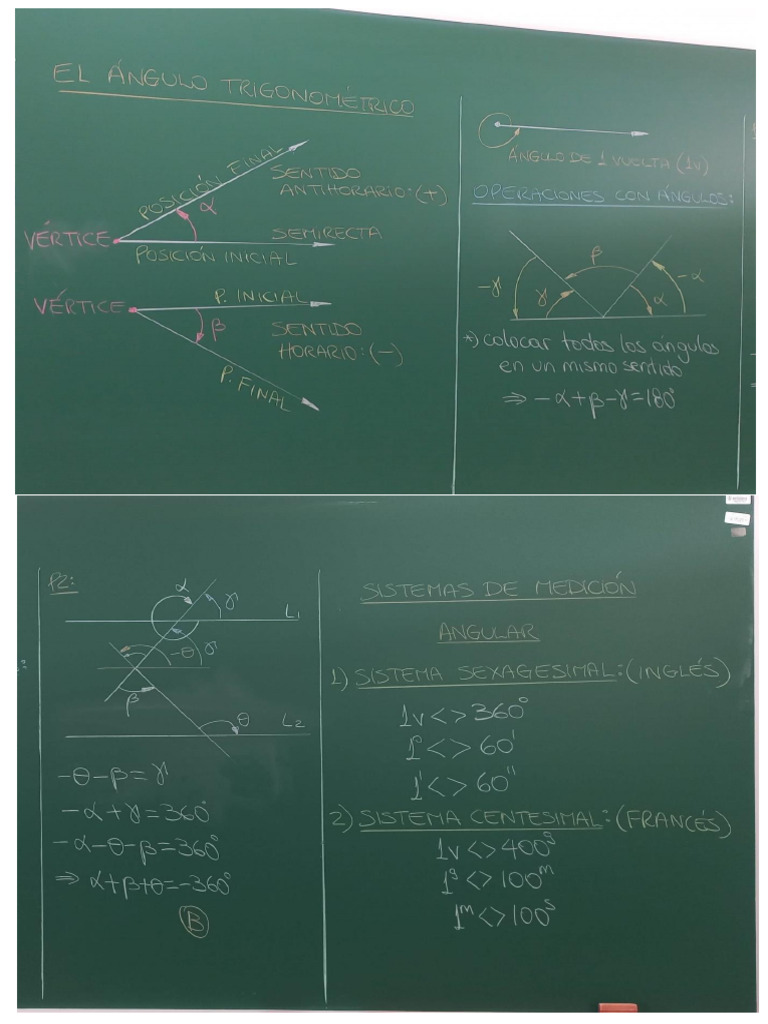 EL ÁNGULO TRIGONOMÉTRICO
POSICIÓN FINAL
SENTIDO
ANTIHORARIO: (+)
α
VÉRTICE
SEMIRECTA
POSICIÓN INICIAL
VÉRTICE
P. INICIAL
β
SENTIDO
HORARIO: (-)
P. FINAL
ÁNGULO DE 1 VUELTA (1v)
OPERACIONES CON ÁNGULOS:
β
-γ
γ
α
-α
*) colocar todos los ángulos
en un mismo sentido
⇒ -α+β-γ=180°
P2:
α
γ
L1
-θ
γ
β
θ
L2
-θ-β=γ
-α+γ=360°
-α-θ-β=360°
⇒ α+β+θ=-360°
B
SISTEMAS DE MEDICIÓN
ANGULAR
1) SISTEMA SEXAGESIMAL: (INGLÉS)
1v<>360°
1°<>60'
1'<>60"
2) SISTEMA CENTESIMAL: (FRANCÉS)
1v<>400^g
1^g<>100^m
1^m<>100^s